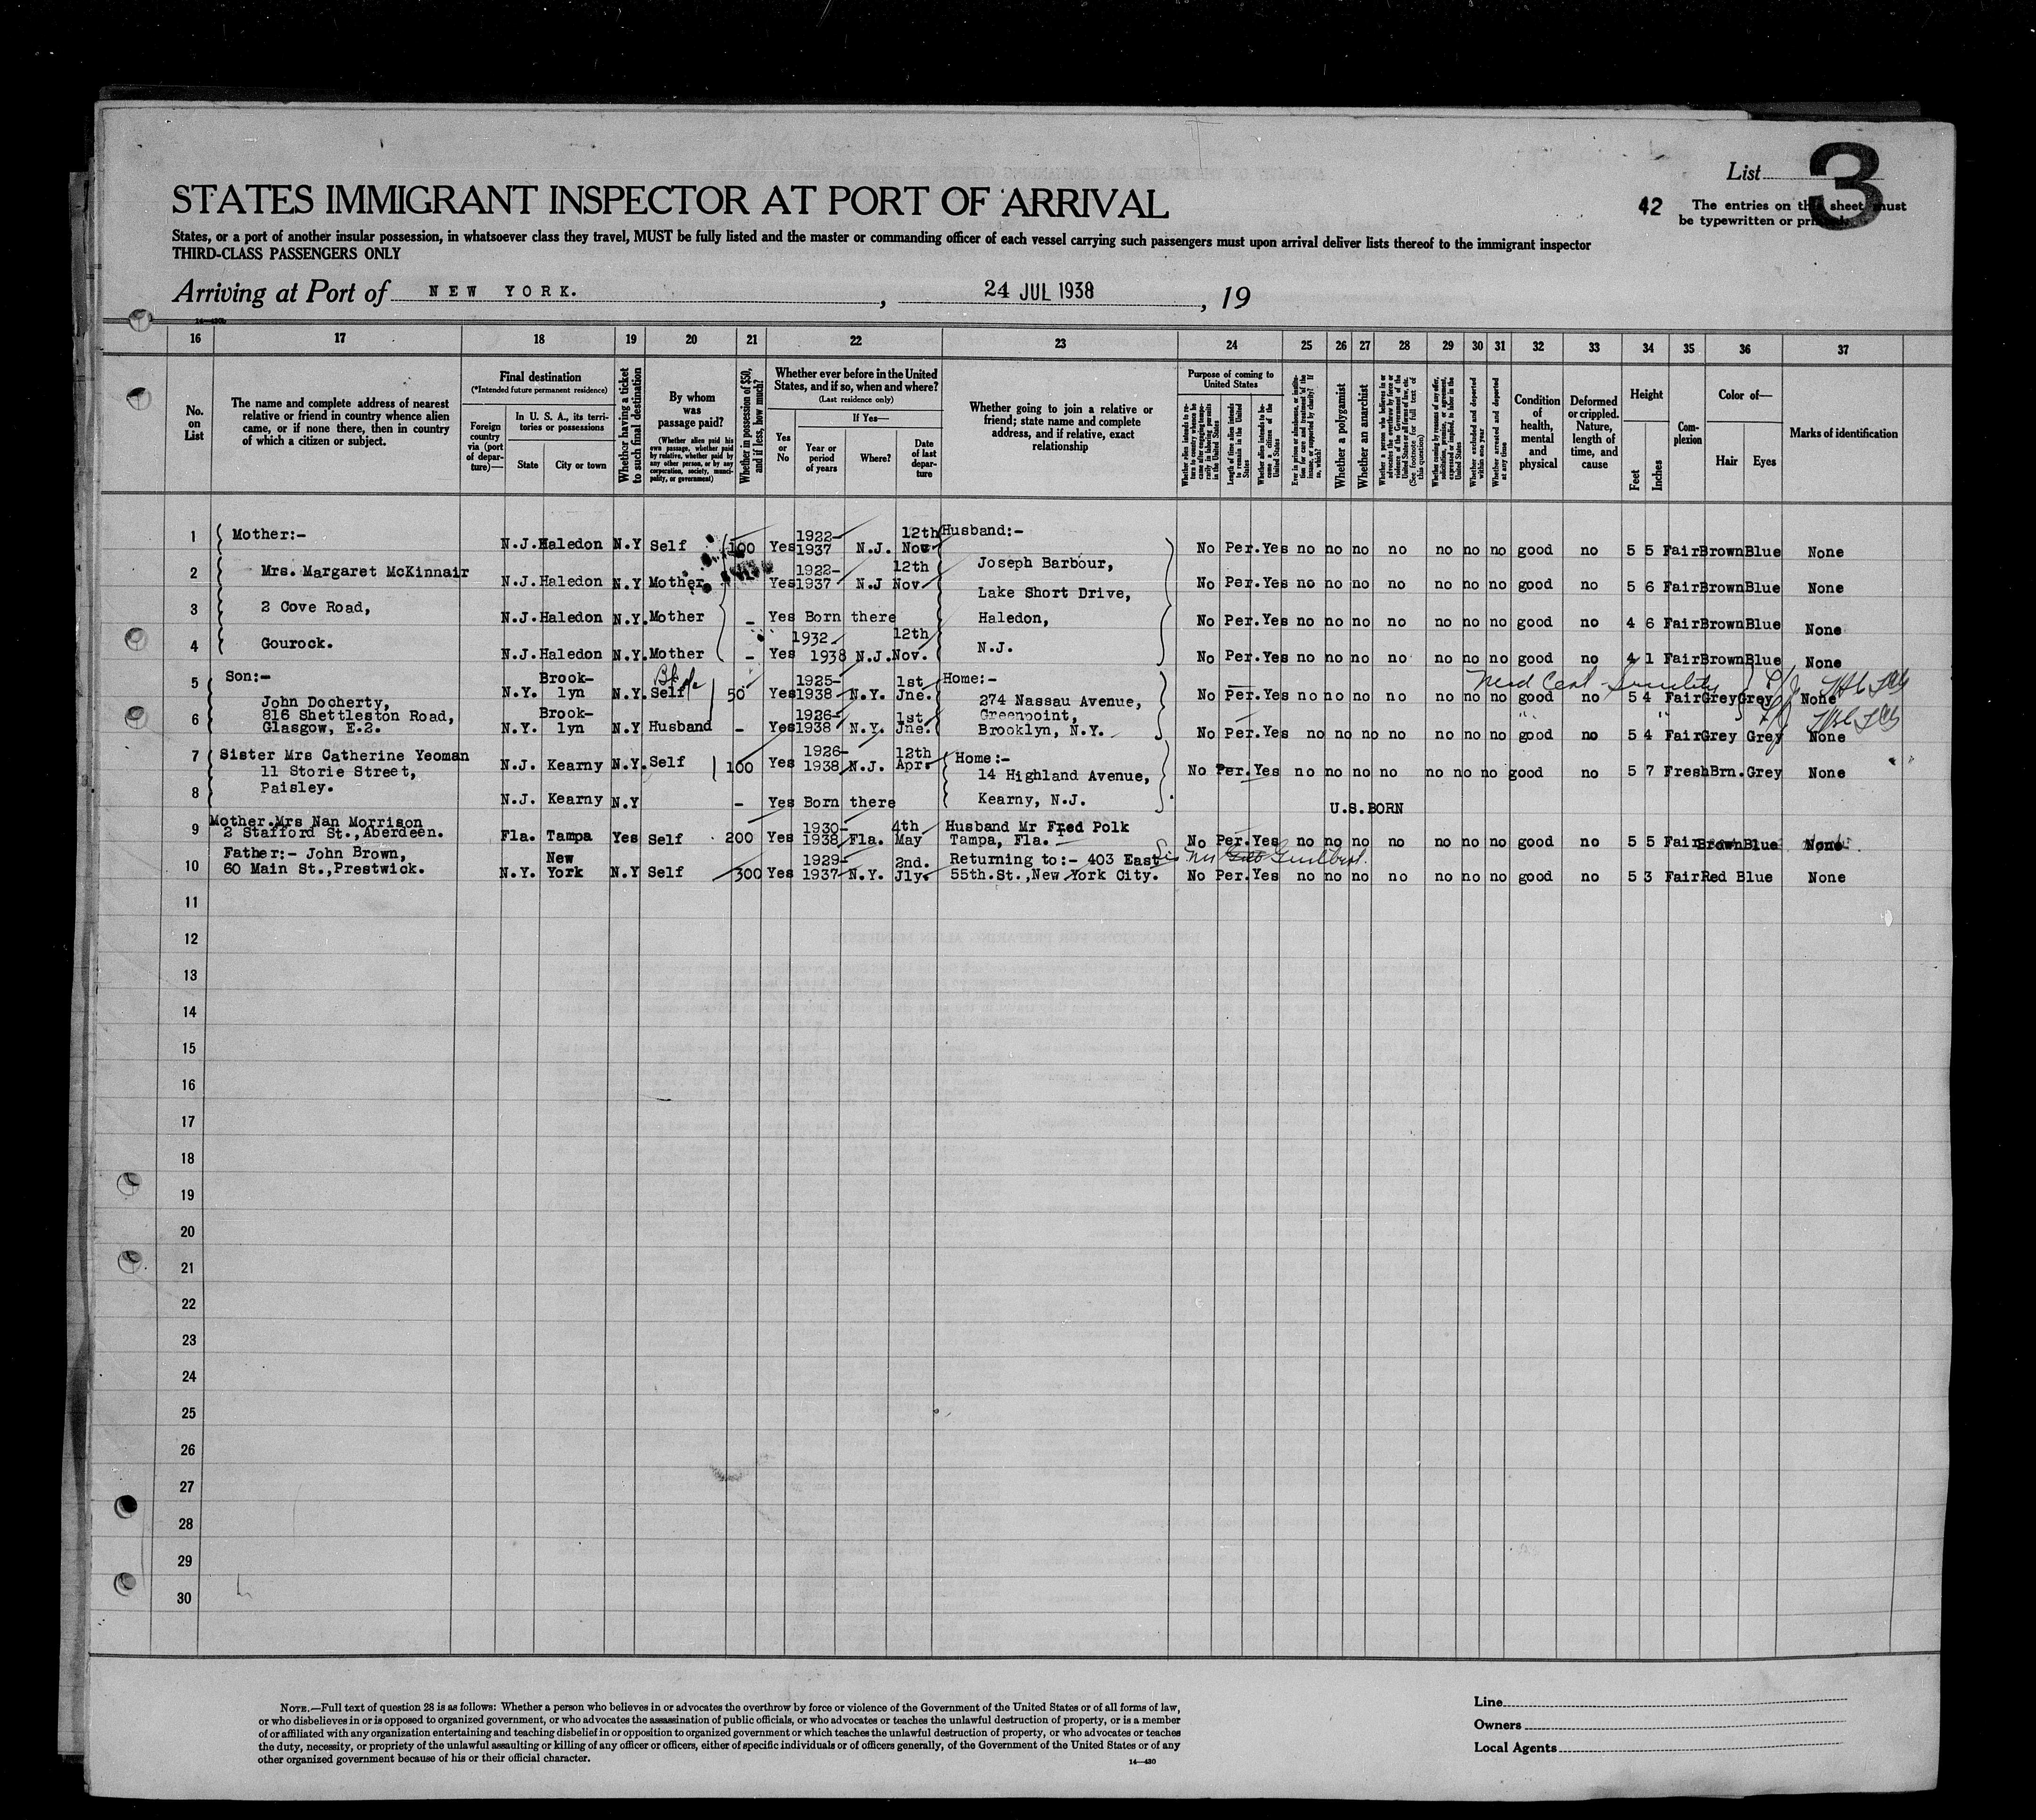 List 3
STATES IMMIGRANT INSPECTOR AT PORT OF ARRIVAL
42 The entries on this sheet must
be typewritten or
States, or a port of another insular possession, in whatsoever class they travel, MUST be fully listed and the master or commanding officer of each vessel carrying such passengers must upon arrival deliver lists thereof to the immigrant inspector
THIRD-CLASS PASSENGERS ONLY
Arriving at Port of NEW YORK. , 24 JUL 1938 , 19
16 17 18 19 20 21 22 23 24 25 26 27 28 29 30 31 32 33 34 35 36 37
No. on List
The name and complete address of nearest relative or friend in country whence alien came, or if none there, then in country of which a citizen or subject.
Final destination
(*Intended future permanent residence)
Foreign country via (port of departure)—
In U. S. A., its territories or possessions
State
City or town
Whether having a ticket to such final destination
By whom was passage paid?
(Whether alien paid his own passage, whether paid by relative, whether paid by any other person, or by any corporation, society, municipality, or government)
Whether in possession of $50, and if less, how much?
Whether ever before in the United States, and if so, when and where?
(Last residence only)
Yes or No
If Yes—
Year or period of years
Where?
Date of last departure
Whether going to join a relative or friend; state name and complete address, and if relative, exact relationship
Purpose of coming to United States
Length of time alien intends to remain in the United States
Whether alien intends to become a citizen of the United States
Whether a polygamist
Whether an anarchist
Whether excluded and deported within one year
Whether arrested and deported at any time
Condition of health, mental and physical
Deformed or crippled. Nature, length of time, and cause
Height
Feet
Inches
Complexion
Color of—
Hair
Eyes
Marks of identification
1 Mother:- N.J. Haledon N.Y Self 100 Yes 1922-1937 N.J. 12th Nov Husband:- No Per. Yes no no no no no no no good no 5 5 Fair Brown Blue None
2 Mrs. Margaret McKinnair N.J. Haledon N.Y Mother Yes 1922-1937 N.J 12th Nov Joseph Barbour, Lake Short Drive, No Per. Yes no no no no no no no good no 5 6 Fair Brown Blue None
3 2 Cove Road, N.J. Haledon N.Y. Mother - Yes Born there Haledon, No Per. Yes no no no no no no no good no 4 6 Fair Brown Blue None
4 Gourock. N.J. Haledon N.Y. Mother - Yes 1932-1938 N.J. 12th Nov. N.J. No Per. Yes no no no no no no no good no 4 1 Fair Brown Blue None
5 Son:- John Docherty, N.Y. Brook-lyn N.Y. Self 50 Yes 1925-1938 N.Y. 1st Jne. Home:- 274 Nassau Avenue, No Per. Yes no no no no no no no good no 5 4 Fair Grey Grey None
Med Cert Senility
6 816 Shettleston Road, Glasgow, E.2. N.Y. Brook-lyn N.Y Husband - Yes 1926-1938 N.Y. 1st Jne. Greenpoint, Brooklyn, N.Y. No Per. Yes no no no no no no no good no 5 4 Fair Grey Grey None
7 Sister Mrs Catherine Yeoman 11 Storie Street, N.J. Kearny N.Y. Self 100 Yes 1926-1938 N.J. 12th Apr. Home:- 14 Highland Avenue, No Per. Yes no no no no no no no good no 5 7 Fresh Brn. Grey None
8 Paisley. N.J. Kearny N.Y - Yes Born there Kearny, N.J. U.S.BORN
9 Mother.Mrs Nan Morrison 2 Stafford St.,Aberdeen. Fla. Tampa Yes Self 200 Yes 1930-1938 Fla. 4th May Husband Mr Fred Polk Tampa, Fla. No Per. Yes no no no no no no no good no 5 5 Fair Brown Blue None
10 Father:- John Brown, 60 Main St.,Prestwick. N.Y. New York N.Y Self 300 Yes 1929-1937 N.Y. 2nd. Jly. Returning to:- 403 East 55th.St.,New York City. No Per. Yes no no no no no no no good no 5 3 Fair Red Blue None
11
12
13
14
15
16
17
18
19
20
21
22
23
24
25
26
27
28
29
30
NOTE.—Full text of question 28 is as follows: Whether a person who believes in or advocates the overthrow by force or violence of the Government of the United States or of all forms of law,
or who disbelieves in or is opposed to organized government, or who advocates the assassination of public officials, or who advocates or teaches the unlawful destruction of property, or is a member
of or affiliated with any organization entertaining and teaching disbelief in or opposition to organized government or which teaches the unlawful destruction of property, or who advocates or teaches
the duty, necessity, or propriety of the unlawful assaulting or killing of any officer or officers, either of specific individuals or of officers generally, of the Government of the United States or of any
other organized government because of his or their official character.
14—430
Line
Owners
Local Agents